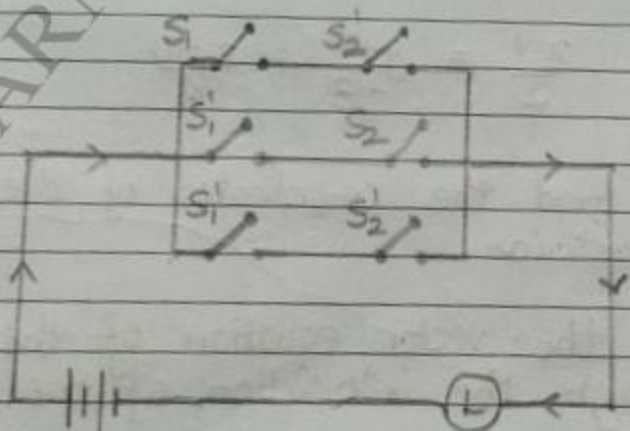 S₁ S₂'
S₁' S₂
S₁' S₂'
L